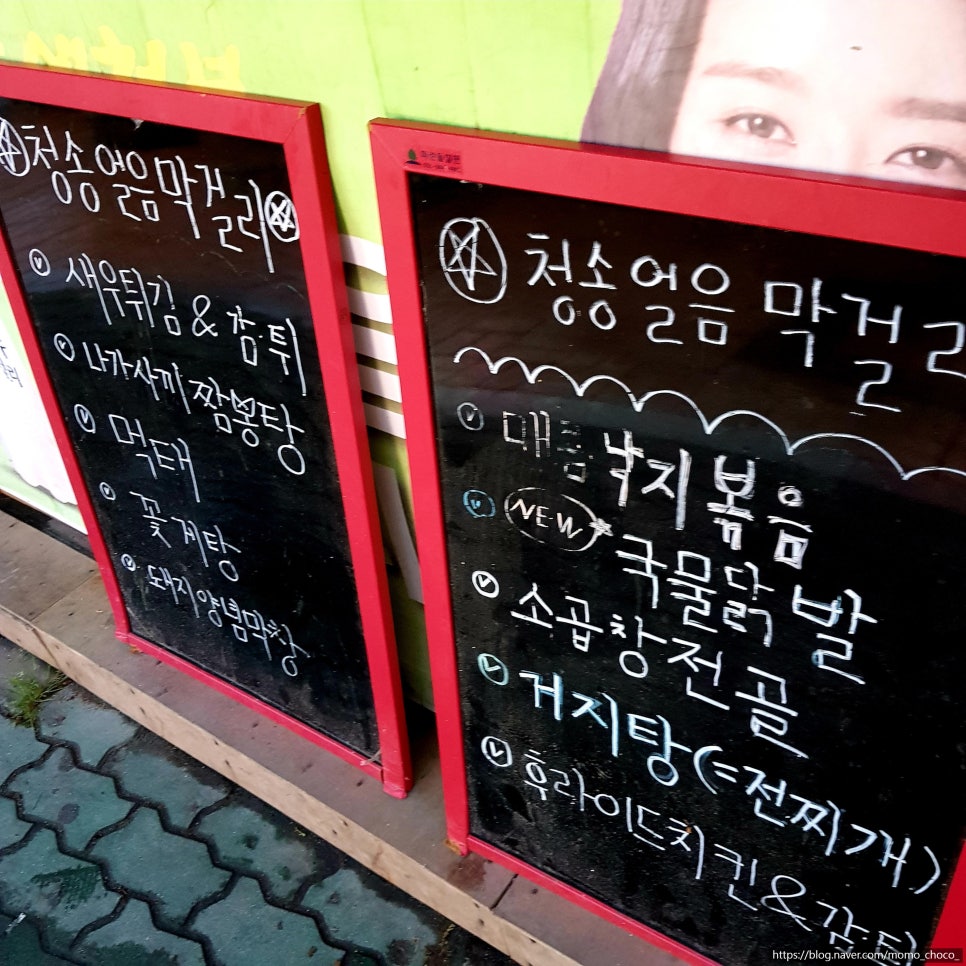 청송얼음막걸리
새우튀김 & 감.튀
나가사끼 짬뽕탕
먹태
꽃게탕
돼지양념막창
청송얼음 막걸리
매콤낙지볶음
NEW 국물닭발
소곱창전골
거지탕(=전찌개)
후라이드치킨 & 감.튀
https://blog.naver.com/momo_choco_